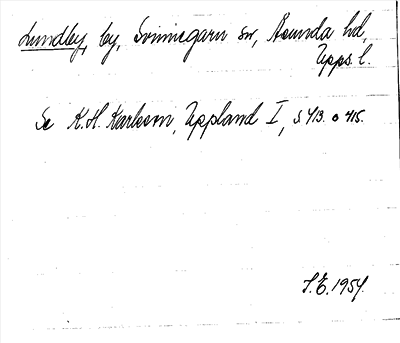 Lundby, by, Svinnegarn sn, Åsunda hd,
Upps. l.
Se K.H. Karlsson, Uppland I, s 413. o 415.
S.E. 1954.